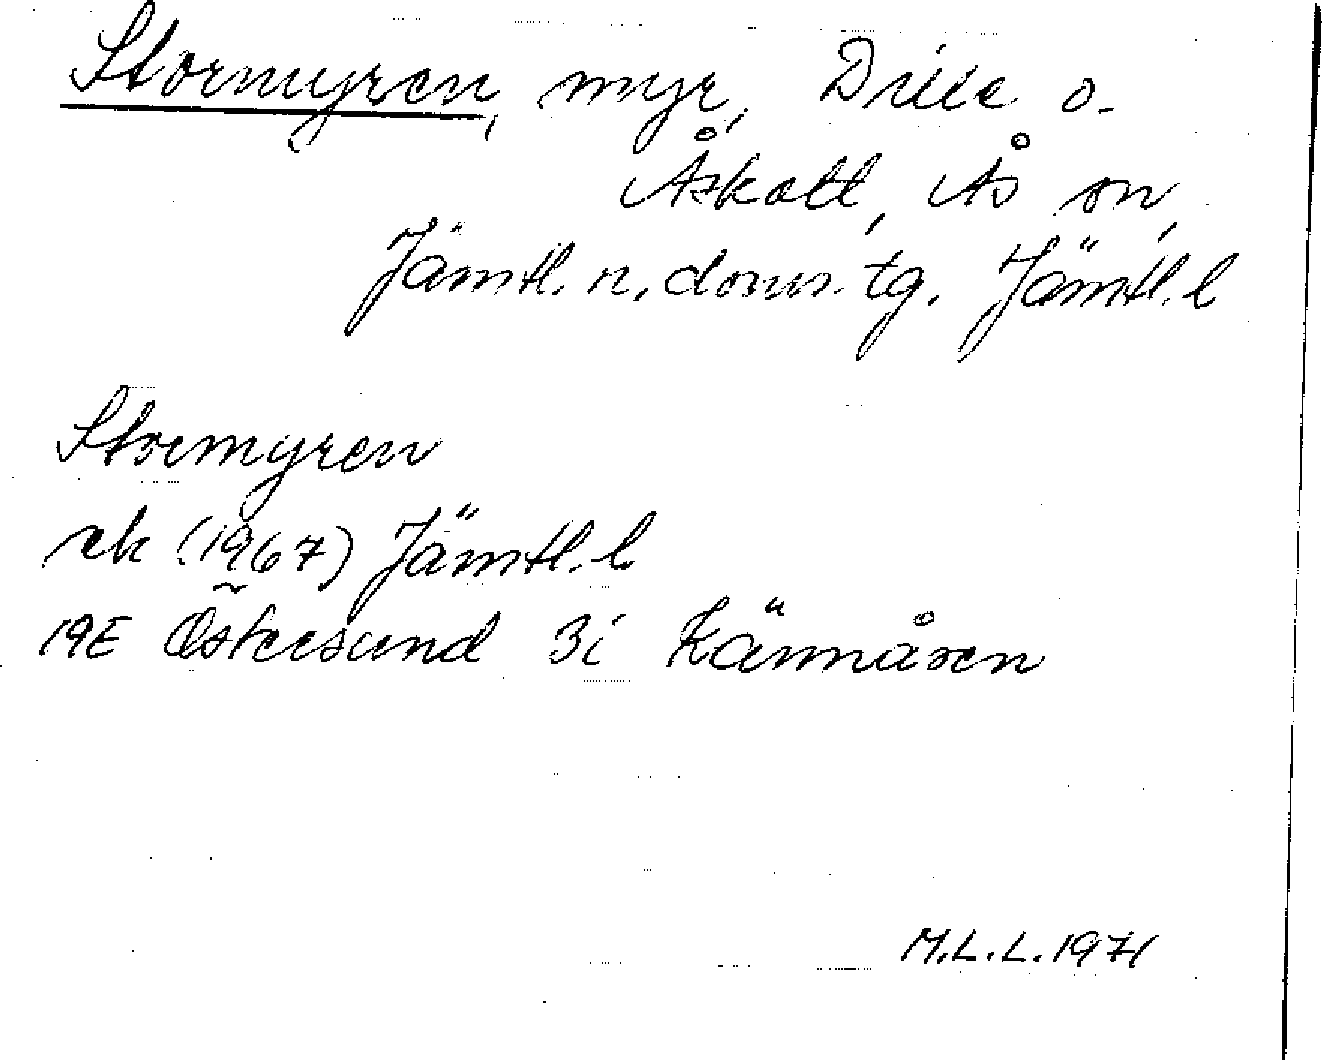 Stormyren, myr, Dille o.
Åskott, Ås sn,
Jämtl. n. doms. tg. Jämtl. l
Stormyren
rk (1967) Jämtl. l.
19E Östersund 3i Kännåsen
M.L.L. 1971